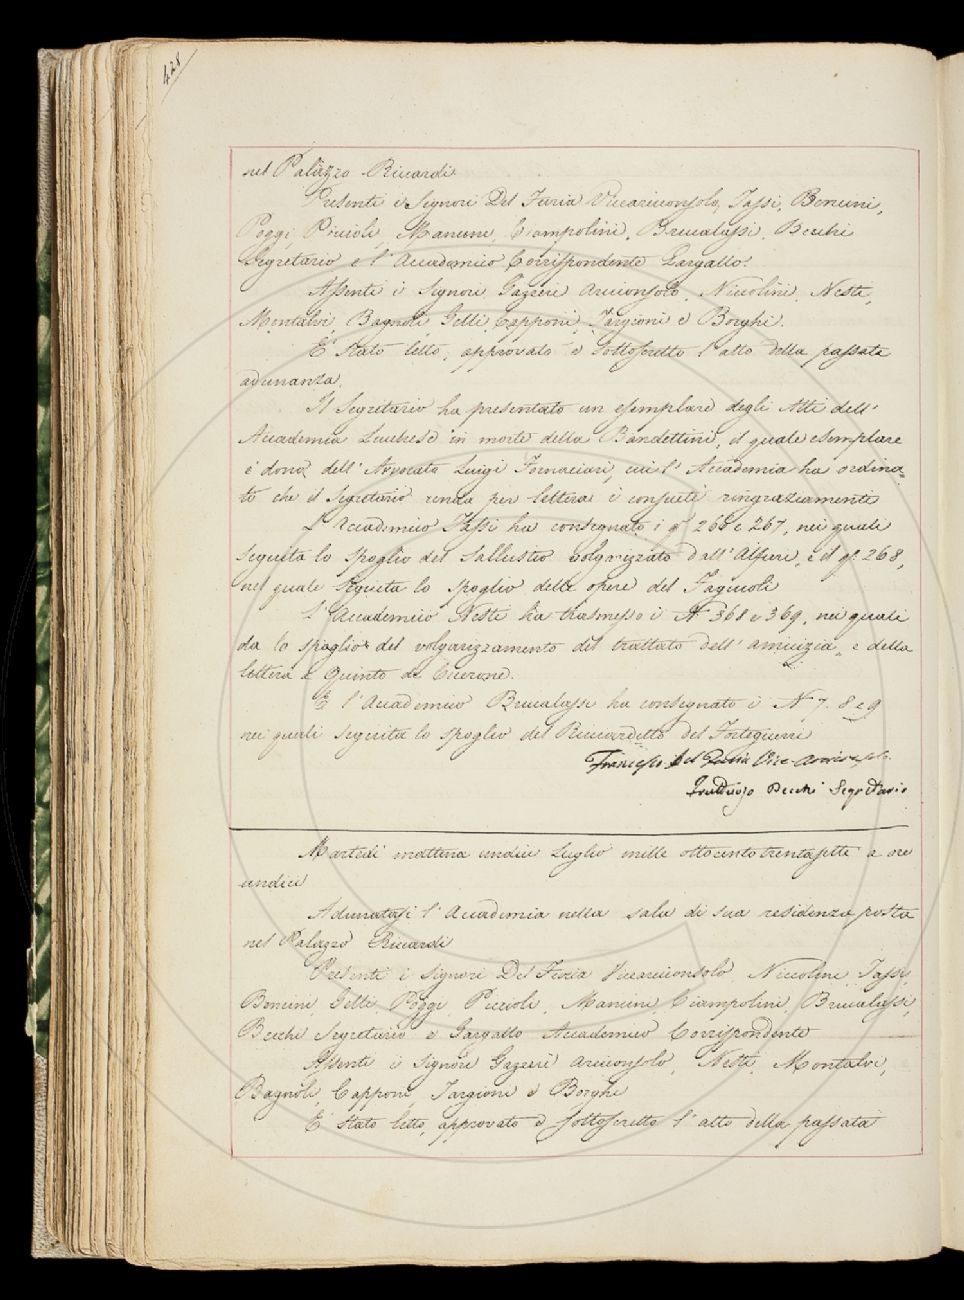 428
nel Palazzo Riccardi
Presenti i Signori Del Furia Vicearciconsolo, Tassi, Bencini,
Poggi, Piccioli, Mancini, Ciampolini, Brucalassi, Becchi
Segretario e l'Accademico Corrispondente Gargallo.
Assenti i Signori Gazzeri Arciconsolo, Niccolini, Nesti,
Montalvi, Bagnoli, Gelli, Capponi, Targioni e Borghi.
E' stato letto, approvato e sottoscritto l'atto della passata
adunanza.
Il Segretario ha presentato un esemplare degli Atti dell'
Accademia Lucchese in morte della Bandettini, il quale esemplare
è dono dell'Avvocato Luigi Fornaciari, cui l'Accademia ha ordina=
to che il Segretario renda per lettera i consueti ringraziamenti
L'Accademico Tassi ha consegnato i q.i 266 e 267, nei quali
seguita lo spoglio del Sallustio volgarizzato dall'Alfieri, e il q.o 268,
nel quale seguita lo spoglio delle opere del Fagiuoli
L'Accademico Nesti ha trasmesso i N.i 368 e 369, nei quali
da lo spoglio del volgarizzamento del trattato dell'amicizia, e della
lettera a Quinto di Cicerone.
E l'Accademico Brucalassi ha consegnato i N.i 7. 8 e 9
nei quali seguita lo spoglio del Ricciardetto del Forteguerri
Francesco Del Furia Vice-Arciconsolo.
Fruttuoso Becchi Segretario
Martedì mattina undici Luglio mille ottocentotrentasette a ore
undici
Adunatasi l'Accademia nella sala di sua residenza posta
nel Palazzo Riccardi
Presenti i Signori Del Furia Vicearciconsolo Niccolini, Tassi,
Bencini, Gelli, Poggi, Piccioli, Mancini, Ciampolini, Brucalassi,
Becchi Segretario e Gargallo Accademico Corrispondente
Assenti i Signori Gazzeri Arciconsolo, Nesti, Montalvi,
Bagnoli, Capponi Targioni e Borghi
E' stato letto, approvato e sottoscritto l'atto della passata